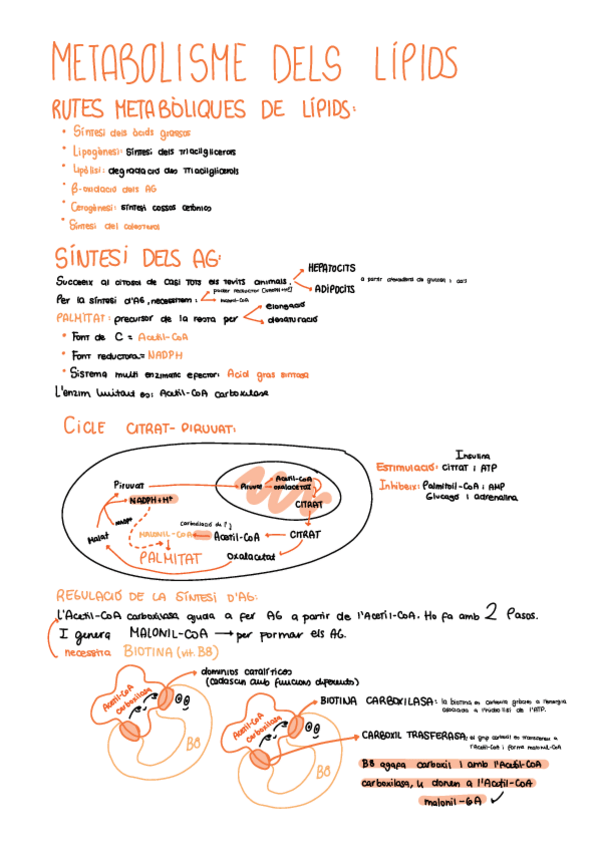 METABOLISME DELS LÍPIDS
RUTES METABÒLIQUES DE LÍPIDS:
• Síntesi dels àcids grassos
• Lipogènesi: Síntesi dels triacilglicerols
• Lipòlisi: degradació dels Triacilglicerols
• β-oxidació dels AG
• Cetogènesi: síntesi cossos cetònics
• Síntesi del colesterol
SÍNTESI DELS AG:
Succeeix al citosol de casi tots els teixits animals.
HEPATÒCITS
ADIPÒCITS
a partir d'excedents de glucosa i aas
Per la síntesi d'AG, necessitem:
poder reductor (NADPH+H⁺)
malonil-CoA
PALMITAT: precursor de la resta per
elongació
desaturació
• Font de C = Acetil-CoA
• Font reductora = NADPH
• Sistema multi enzimàtic efector: Àcid gras sintasa
L'enzim limitant és: Acetil-CoA carboxilasa
CICLE CITRAT-PIRUVAT:
Insulina
Estimulació: CITRAT i ATP
Inhibeix: Palmitoil-CoA i AMP
Glucagó i adrenalina
Piruvat
Piruvat
Acetil-CoA
oxalacetat
NADPH+H⁺
CITRAT
NADP⁺
Malat
MALONIL-CoA
Acetil-CoA
CITRAT
PALMITAT
Oxalacetat
REGULACIÓ DE LA SÍNTESI D'AG:
L'Acetil-CoA carboxilasa ajuda a fer AG a partir de l'Acetil-CoA. Ho fa amb 2 Pasos.
I genera MALONIL-COA → per formar els AG.
necessita BIOTINA (vit. B8)
dominios catalíticos
(cadascun amb funcions diferents)
Acetil-CoA
carboxilasa
B8
Acetil-CoA
carboxilasa
B8
BIOTINA CARBOXILASA: la biotina es carboxila gràcies a l'energia
associada a l'hidròlisi de l'ATP.
CARBOXIL TRASFERASA: el grup carboxil es transfereix a
l'acetil-CoA i forma malonil-CoA
B8 agafa carboxil i amb l'Acetil-CoA
carboxilasa, li donen a l'Acetil-CoA
malonil-CoA ✓